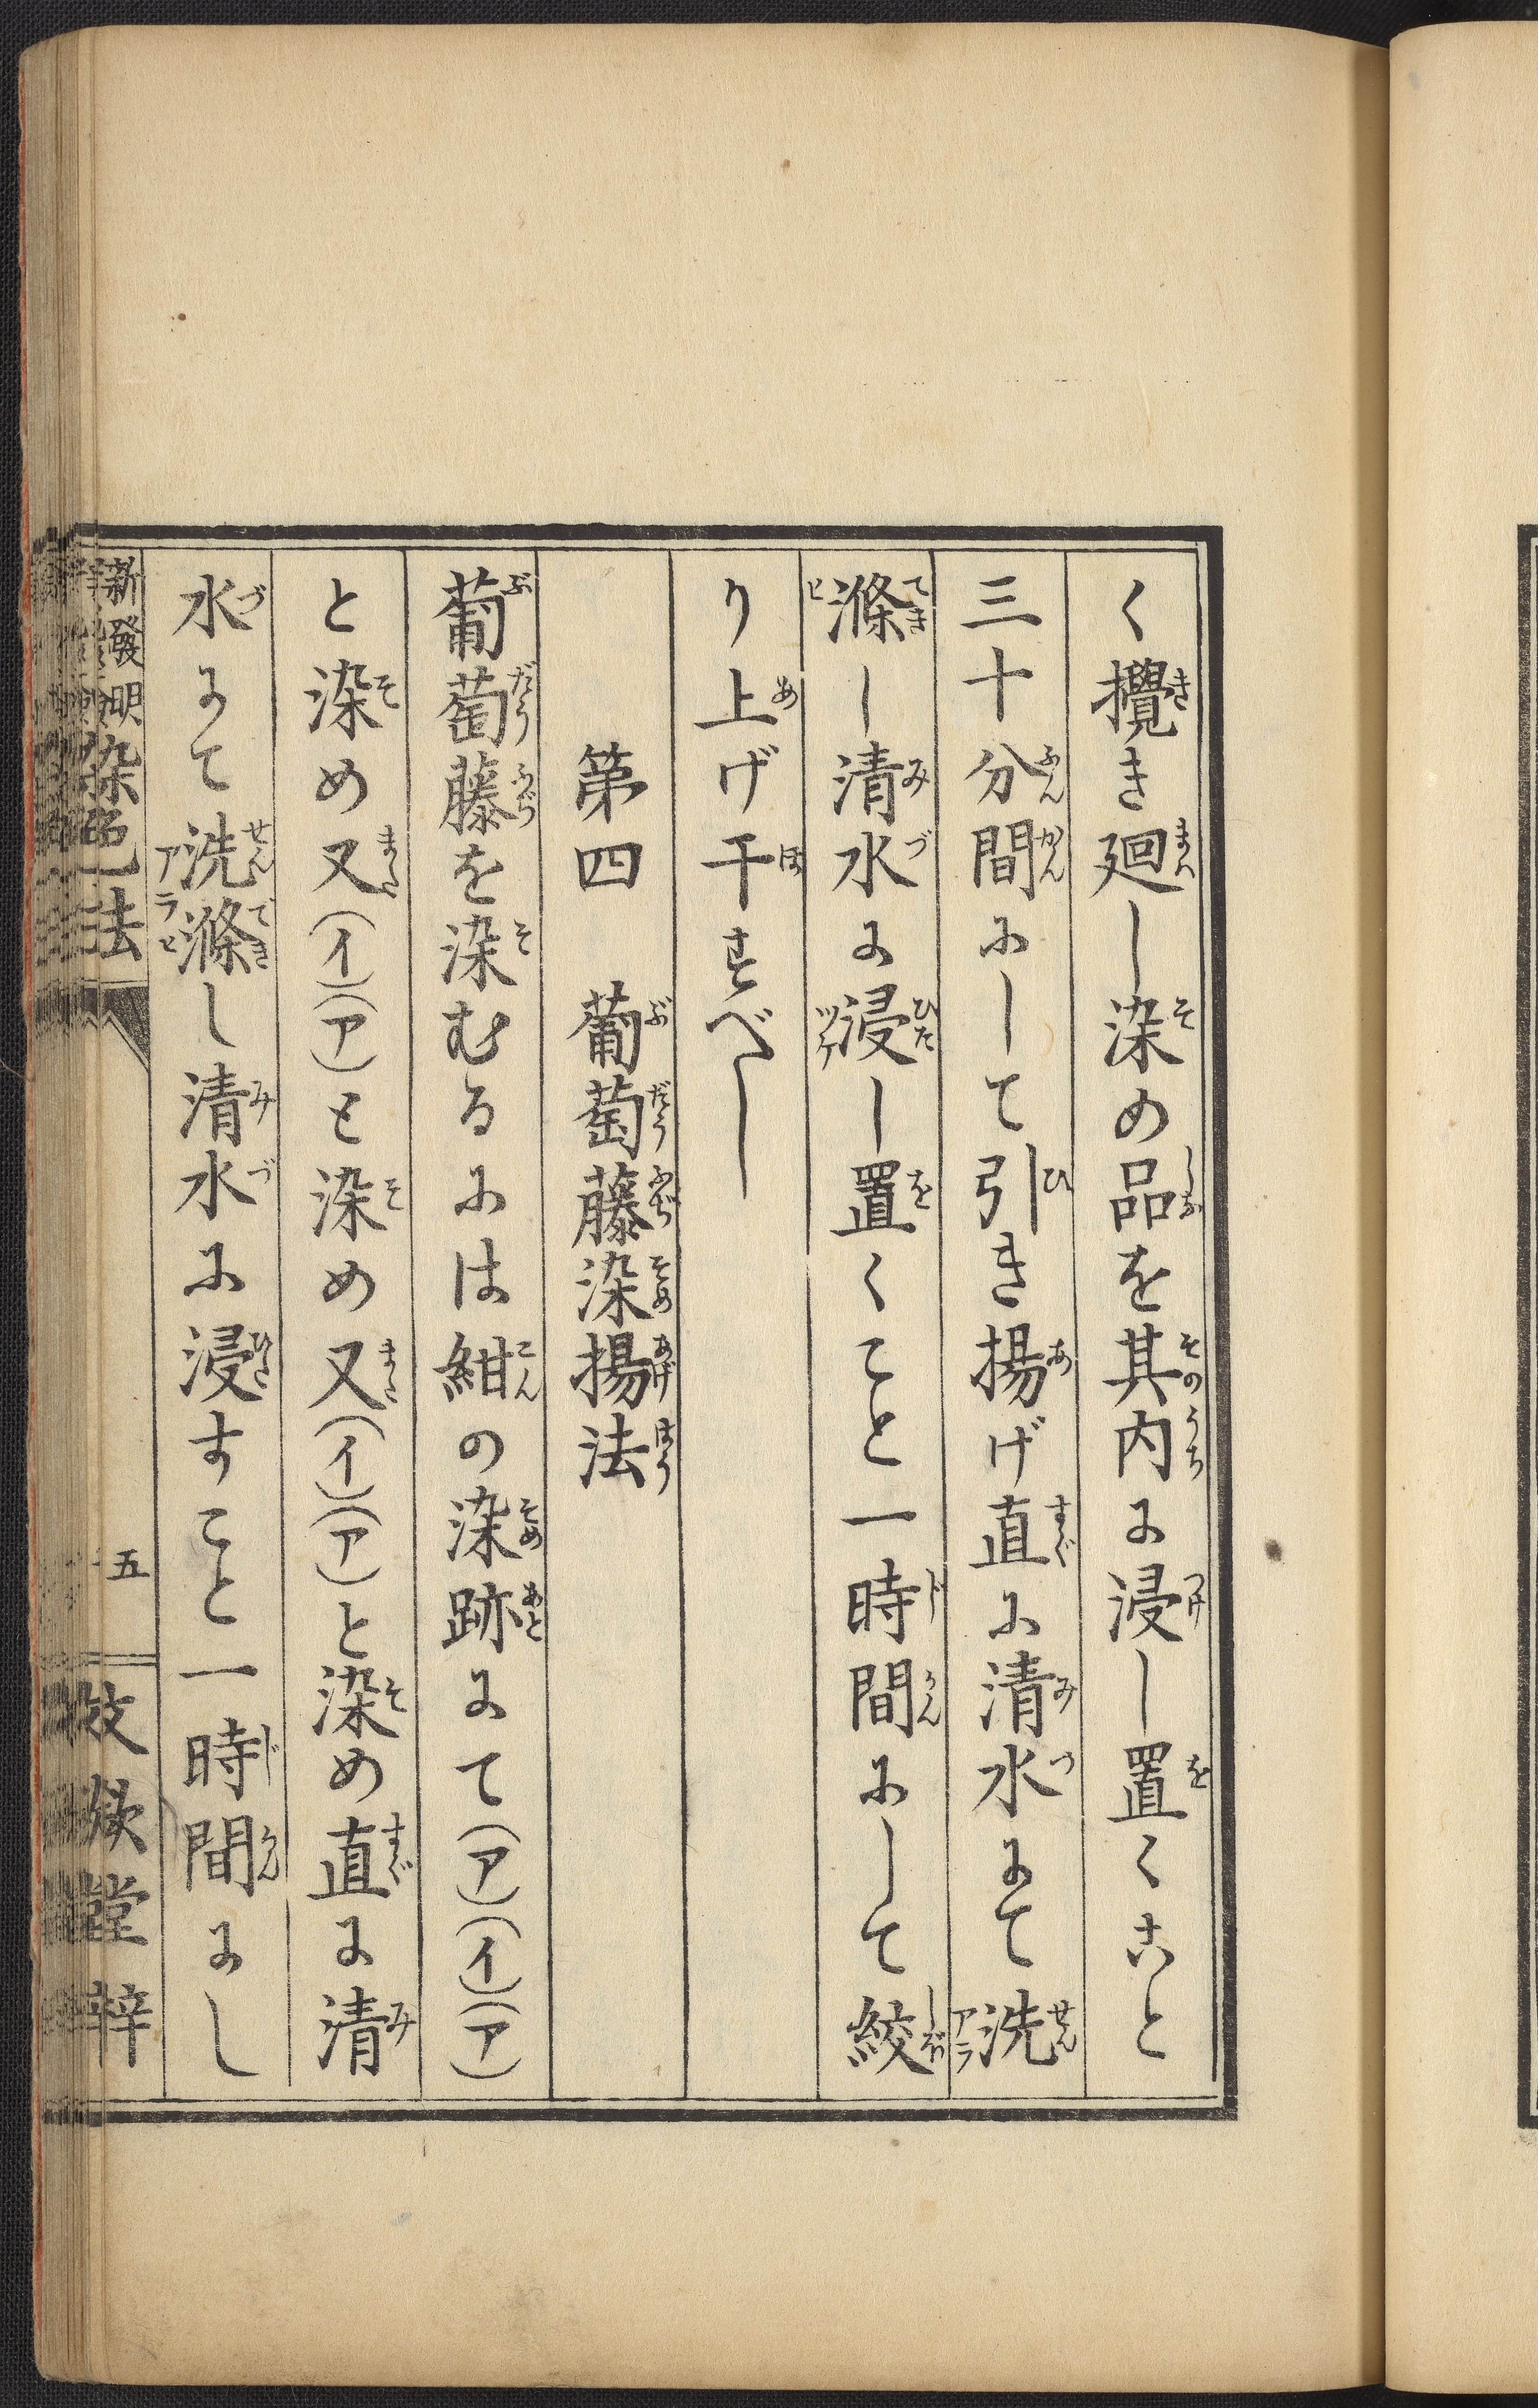 く攪き廻し染め品を其内に浸し置くこと
三十分間にして引き揚げ直に清水にて洗
滌し清水に浸し置くこと一時間にして絞
り上げ干すべし
第四　葡萄藤染揚法
葡萄藤を染むるには紺の染跡にて(ア)(イ)(ア)
と染め又(イ)(ア)と染め又(イ)(ア)と染め直に清
水にて洗滌し清水に浸すこと一時間にし
新發明染色法　五